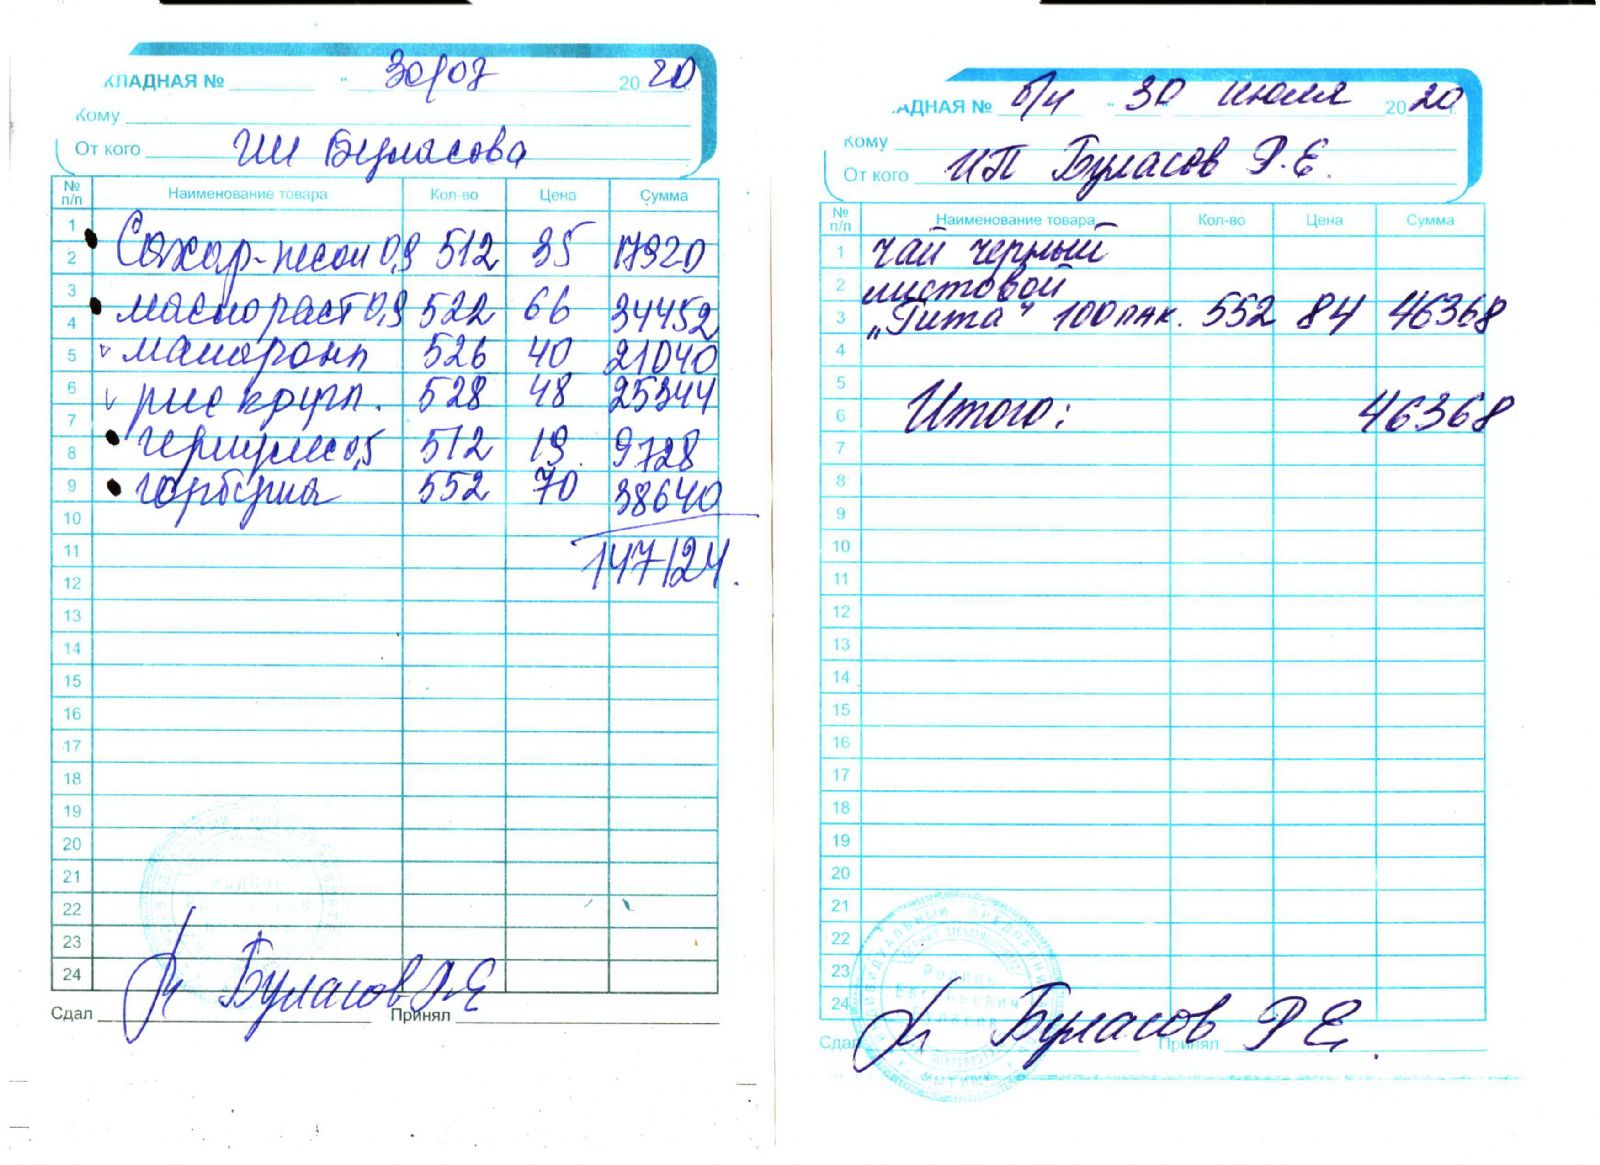 КЛАДНАЯ № " 30/07 2020
Кому
От кого ИП Буласова
№ п/п Наименование товара Кол-во Цена Сумма
1
2 Сахар-песок 0,9 512 35 17920
3
4 масло раст 0,9 522 66 34452
5 макароны 526 40 21040
6 рис кругл. 528 48 25344
7
8 геркулес 0,5 512 19 9728
9 горбуша 552 70 38640
10
11
12 147124.
13
14
15
16
17
18
19
20
21
22
23
24
Буласов Р.Е
Сдал Принял
АДНАЯ № б/н " 30 июля 2020 г.
Кому
От кого ИП Буласов Р.Е.
№ п/п Наименование товара Кол-во Цена Сумма
1 чай черный
2 листовой
3 „Гита“ 100 пак. 552 84 46368
4
5
6 Итого: 46368
7
8
9
10
11
12
13
14
15
16
17
18
19
20
21
22
23
24
ИНДИВИДУАЛЬНЫЙ ПРЕДПРИНИМАТЕЛЬ
Буласов Р.Е.
Сдал Принял